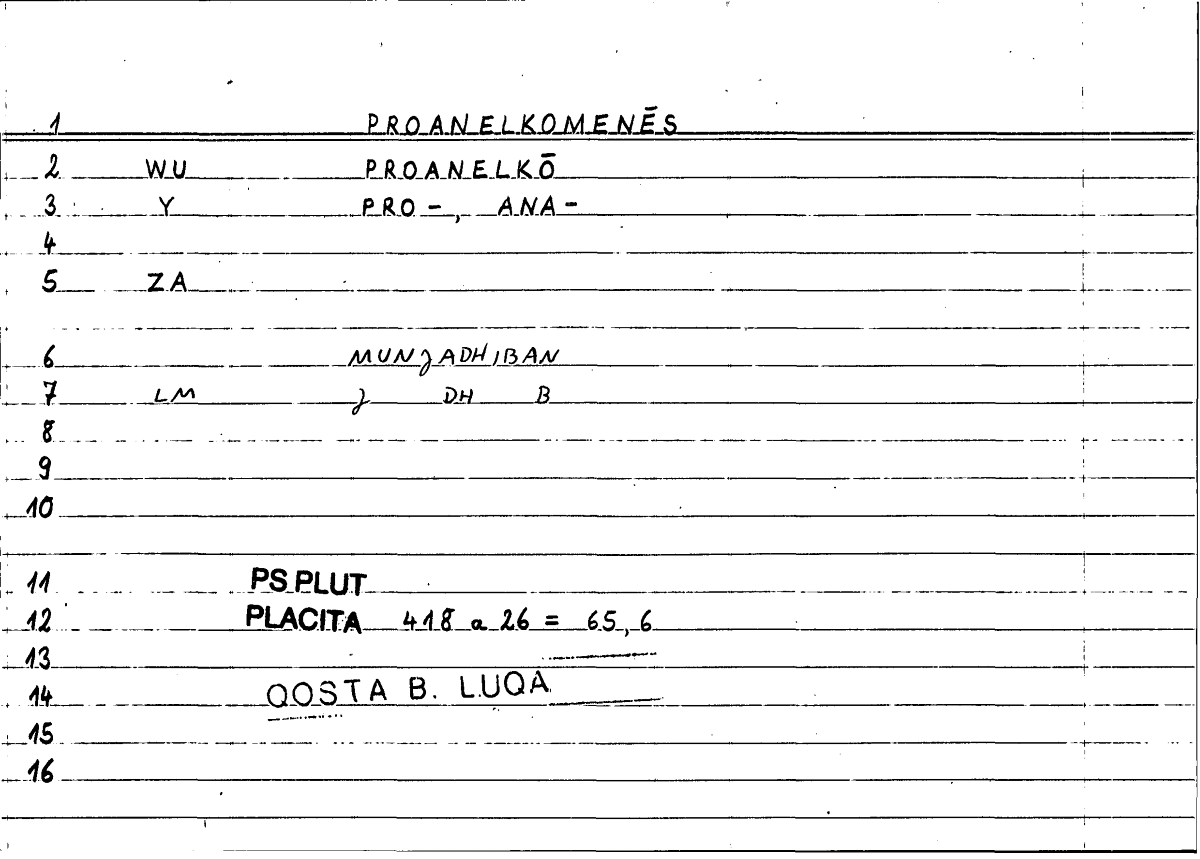 1 PROANELKOMENĒS
2 WU PROANELKŌ
3 Y PRO-, ANA-
4
5 ZA
6 MUNJADHIBAN
7 LM J DH B
8
9
10
11 PS PLUT
12 PLACITA 418 a 26 = 65,6
13
14 QOSTA B. LUQA
15
16